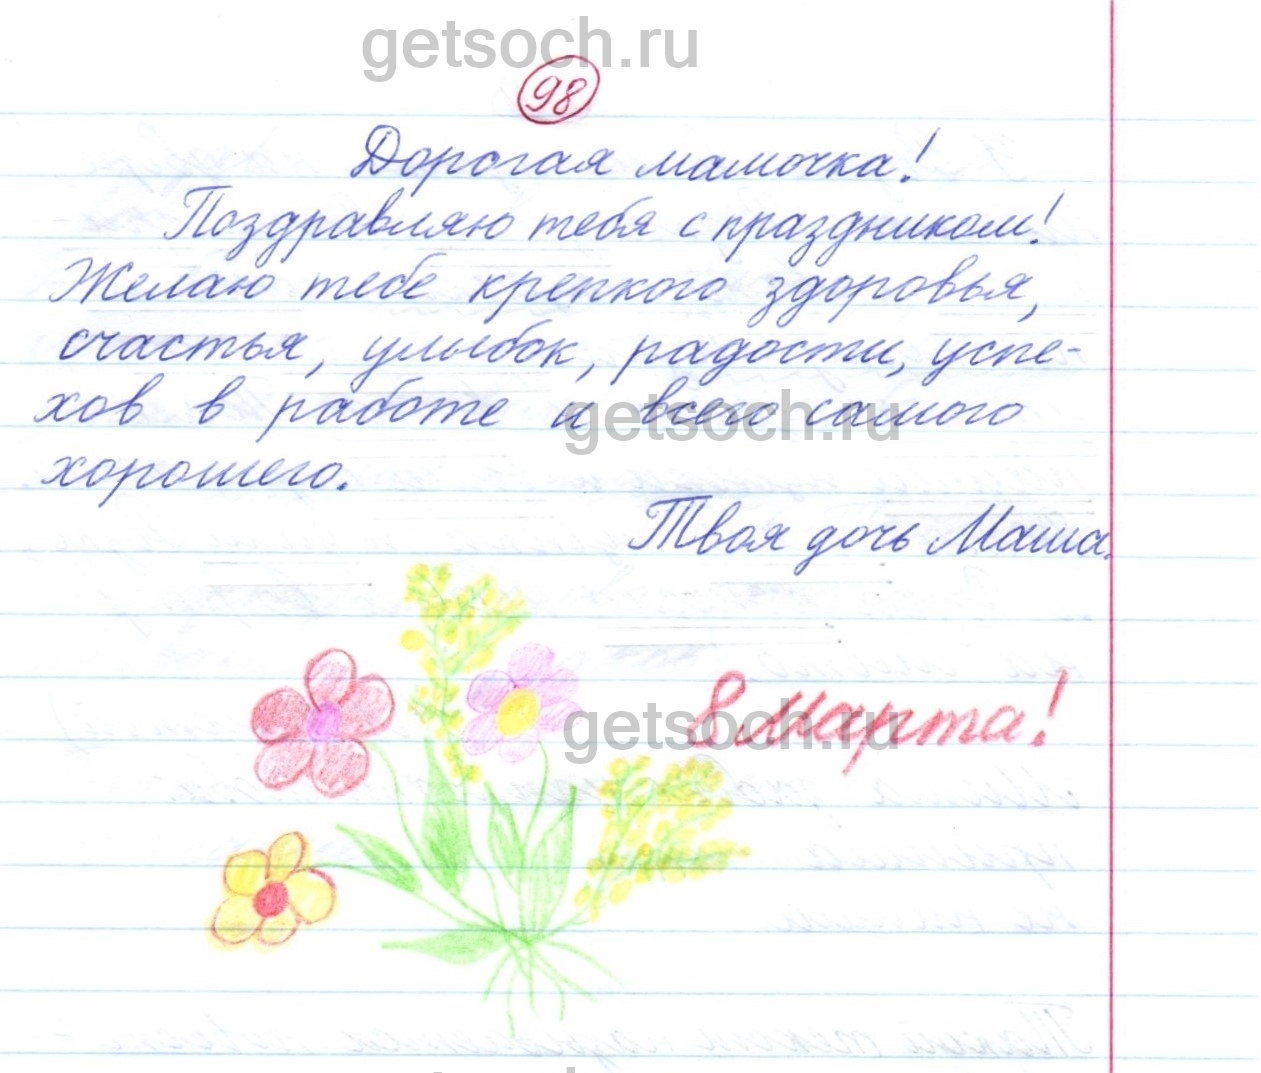 getsoch.ru
98
Дорогая мамочка!
Поздравляю тебя с праздником!
Желаю тебе крепкого здоровья,
счастья, улыбок, радости, успе-
хов в работе и всего самого
getsoch.ru
хорошего.
Твоя дочь Маша.
8 Марта!
getsoch.ru